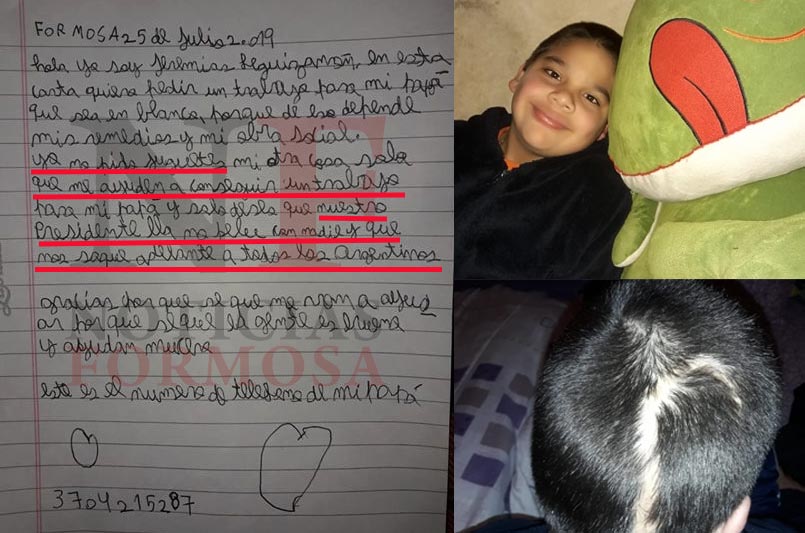 FORMOSA 25 de Julio 2.019
hola yo soy Jeremias Leguizamon, en esta
carta quiero pedir un trabajo para mi papá
que sea en blanco, porque de eso depende
mis remedios y mi obra social.
yo no pido juguetes mi otra cosa solo
que me ayuden a conseguir un trabajo
para mi papá y solo deseo que nuestro
Presidente lla no pelee con nadie y que
nos saque adelante a todos los Argentinos
gracias por que se que me van a ayud
ar por que se que la gente es buena
y ayudan mucho
este es el numero de telefono de mi papá
3704215287
NF
NOTICIAS
FORMOSA